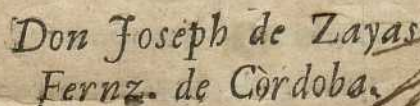 Don Joseph de Zayas
Fernz. de Còrdoba.